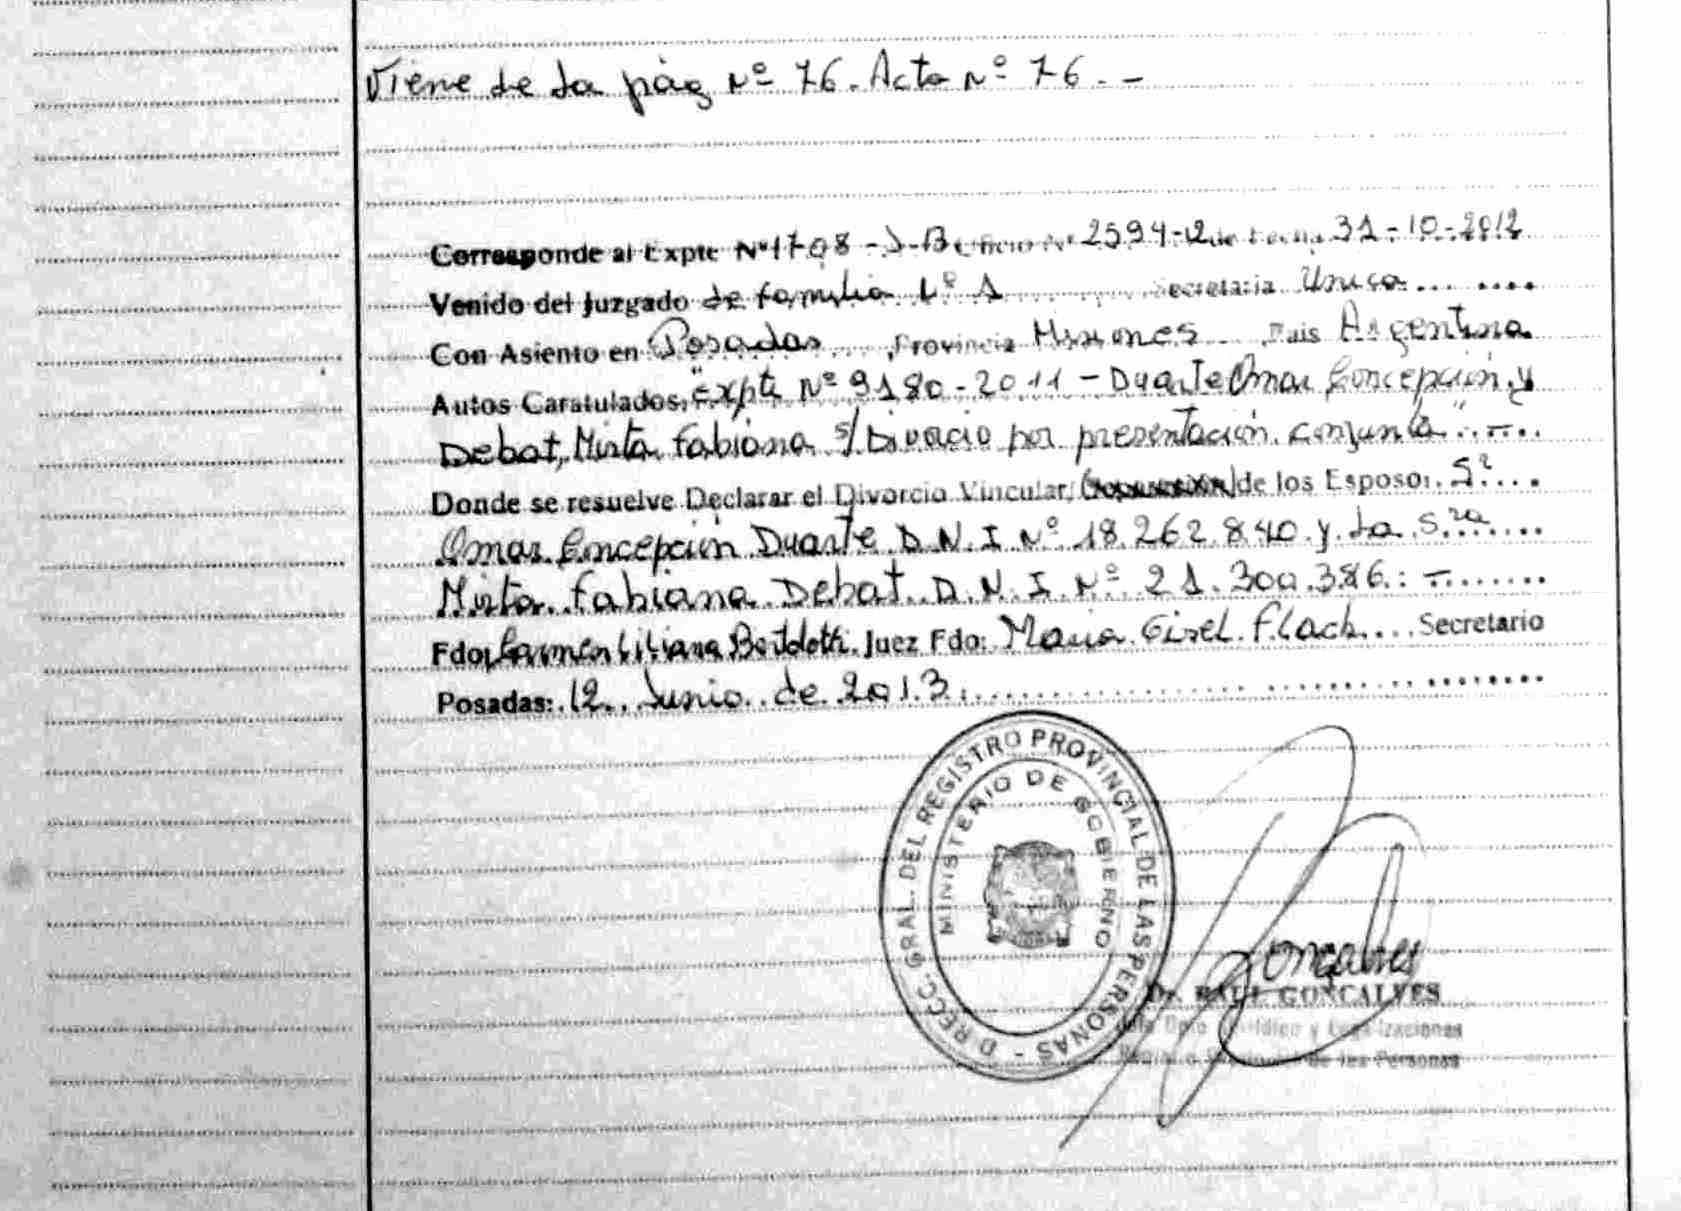 Viene de la pág Nº 76. Acta Nº 76. -
Corresponde al Expte Nº 1708 - J-B Oficio Nº 2594-12 de Fecha 31-10-2012
Venido del Juzgado de familia Nº 1 Secretaria Única
Con Asiento en Posadas Provincia Misiones Pais Argentina
Autos Caratulados, "Expte Nº 9180-2011 - Duarte Omar Concepción y
Debat, Mirta Fabiana s/ Divorcio por presentación conjunta". -
Donde se resuelve Declarar el Divorcio Vincular, de los Esposo: Sr
Omar Concepción Duarte D.N.I Nº 18.262.840 y la Sra
Mirta Fabiana Debat D.N.I Nº 21.300.386. -
Fdo: Carmen Liliana Bertolotti Juez Fdo: Maria Gisel Flach Secretario
Posadas: 12 Junio de 2013.
DIRECC. GRAL. DEL REGISTRO PROVINCIAL DE LAS PERSONAS -
MINISTERIO DE GOBIERNO
Goncalves
Dr. RAUL GONCALVES
Dpto Jurídico y Legalizaciones
de las Personas